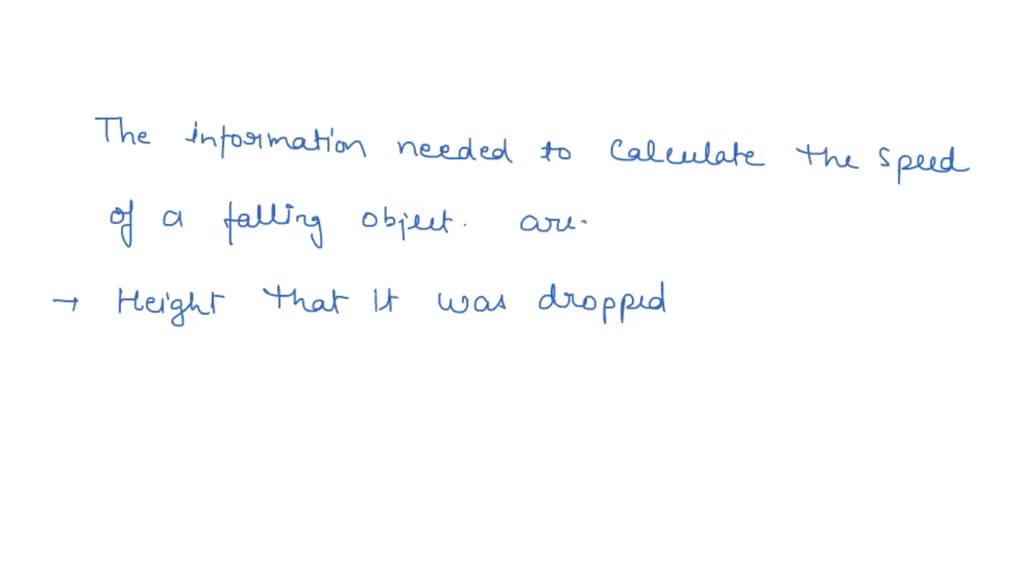 The information needed to calculate the speed
of a falling object. are.
→ Height that it was dropped